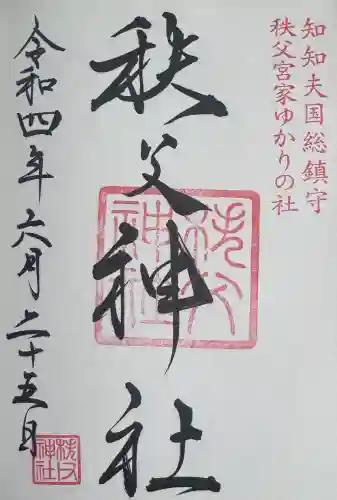 知知夫国総鎮守
秩父宮家ゆかりの社
秩父神社
秩父神社
令和四年六月二十五日
秩父神社